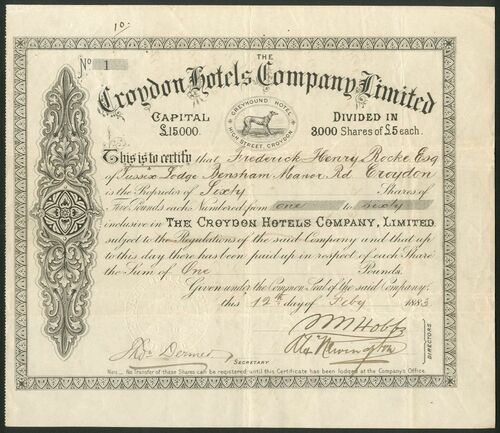 10.
No 1
THE
Croydon Hotels Company Limited
CAPITAL
£15000.
GREYHOUND HOTEL
HIGH STREET, CROYDON
DIVIDED IN
3000 Shares of £5 each.
This is to certify that Frederick Henry Rocke Esq
of Sussex Lodge Bensham Manor Rd. Croydon
is the Proprietor of Sixty Shares of
Five Pounds each Numbered from one to sixty
inclusive in THE CROYDON HOTELS COMPANY, LIMITED
subject to the Regulations of the said Company and that up
to this day there has been paid up in respect of each Share
the Sum of One Pounds.
Given under the Common Seal of the said Company,
this 12th day of Feby 1883
W M Hobbs
DIRECTORS
SECRETARY
Note. No Transfer of these Shares can be registered until this Certificate has been lodged at the Company's Office.